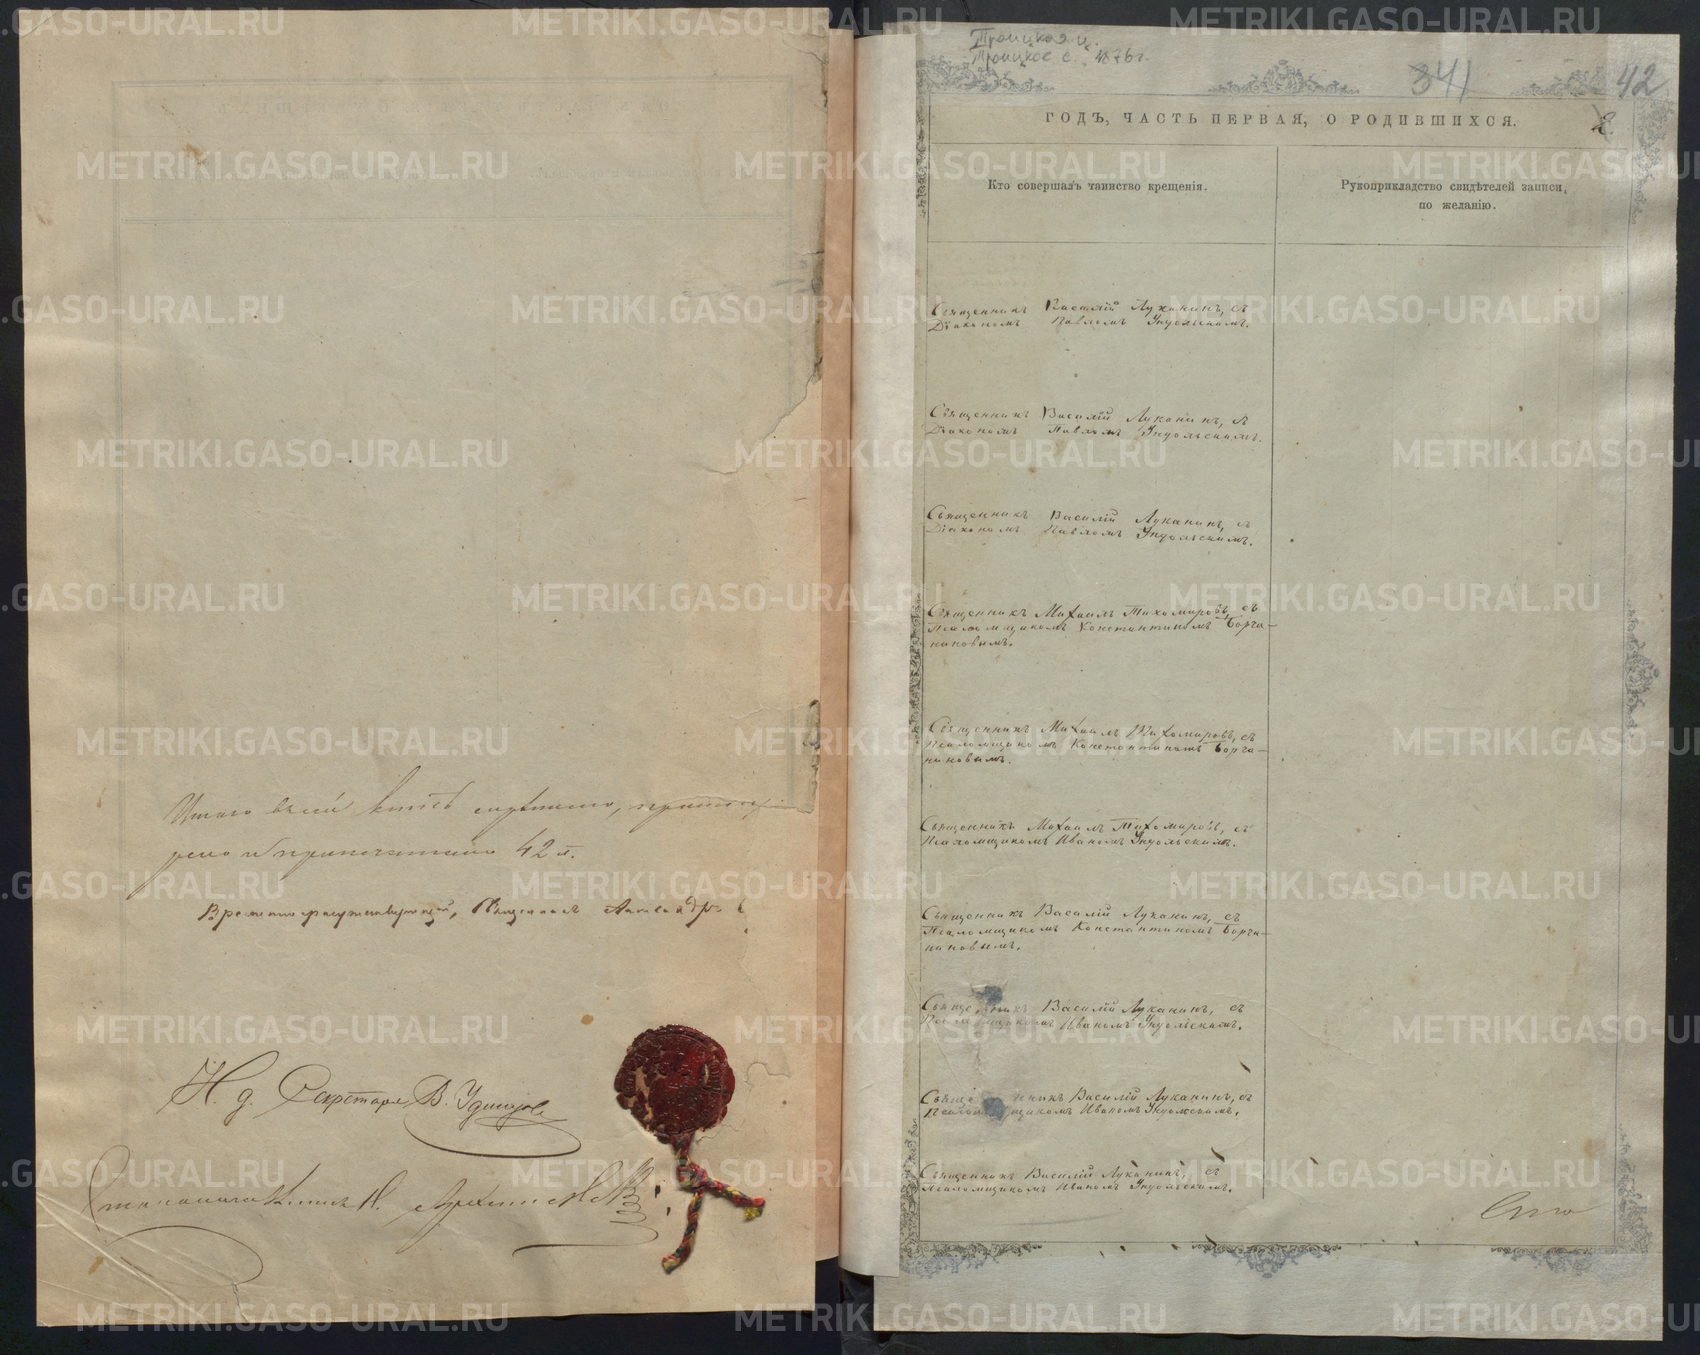 Итого въ сей книгѣ
рено и припечатано 42 л.
Священник
И. д. Секретаря В.
Троицкая ц.
Троицкое с. 1876 г.
341 42
ГОДЪ, ЧАСТЬ ПЕРВАЯ, О РОДИВШИХСЯ. 2
Кто совершалъ таинство крещенія.
Рукоприкладство свидѣтелей записи,
по желанію.
Священникъ Василій Луканинъ, съ
Діакономъ Павломъ Индольскимъ.
Священникъ Василій Луканинъ, съ
Діакономъ Павломъ Индольскимъ.
Священникъ Василій Луканинъ, съ
Діакономъ Павломъ Индольскимъ.
Священникъ Михаилъ Тихомировъ, съ
Псаломщикомъ Константиномъ Борча-
ниновымъ.
Священникъ Михаилъ Тихомировъ, съ
Псаломщикомъ Константиномъ Борча-
ниновымъ.
Священникъ Михаилъ Тихомировъ, съ
Псаломщикомъ Иваномъ Индольскимъ.
Священникъ Василій Луканинъ, съ
Псаломщикомъ Константиномъ Борча-
ниновымъ.
Священникъ Василій Луканинъ, съ
Псаломщикомъ Иваномъ Индольскимъ.
Священникъ Василій Луканинъ, съ
Псаломщикомъ Иваномъ Индольскимъ.
Священникъ Василій Луканинъ, съ
Псаломщикомъ Иваномъ Индольскимъ.
METRIKI.GASO-URAL.RU